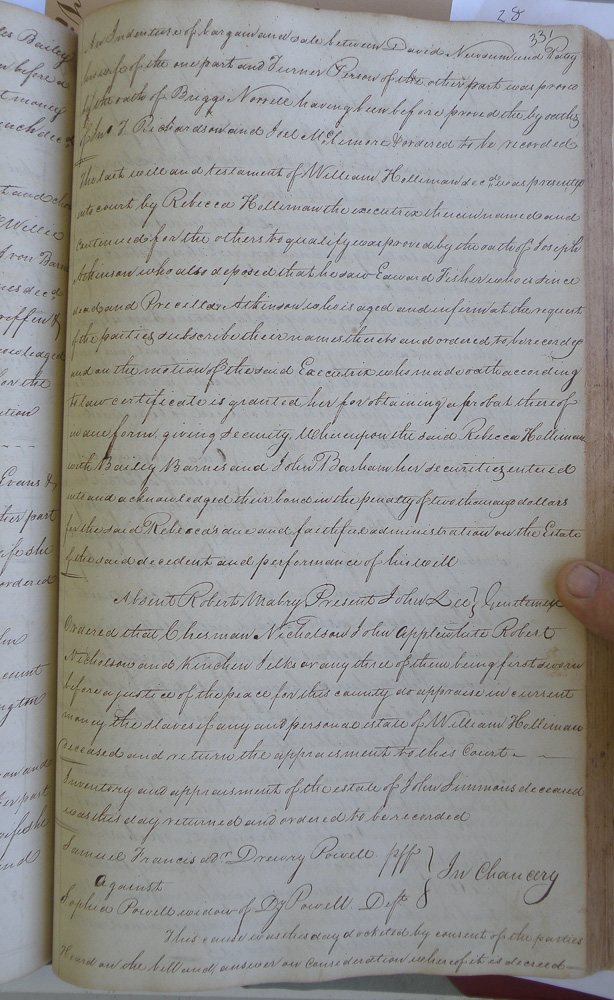 28
331
An Indenture of bargain and sale between David Newsum and Patsy
his wife of the one part and Turner Person of the other part was proved
by the oath of Briggs Norvell having been before proved the by oaths
of T. Richardson and Joel McLemore & ordered to be recorded
The last will and testament of William Holliman decd. was presented
into court by Rebecca Holliman the executrix therein named and
continued for the others to qualify was proved by the oath of Joseph
Atkinson who also deposed that he saw Edward Fisher who is since
dead and Precilla Atkinson who is aged and infirm at the request
of the parties subscribe their names thereto and ordered to be recorded
and on the motion of the said Executrix who made oath according
to law certificate is granted her for obtaining a probat thereof
in due form, giving security. Whereupon the said Rebecca Holliman
with Bailey Barnes and John Barham her securities entered
into and acknowledged their bond in the penalty of two thousand dollars
for the said Rebecca's due and faithful administration on the Estate
of the said decedent and performance of his will
Absent Robert Mabry Present John Lee Gentlemen
Ordered that Chesman Nicholson John Applewhite Robert
Nicholson and Kinchen Jelks or any three of them being first sworn
before a justice of the peace for this county do appraise in current
money the slaves if any and personal estate of William Holliman
deceased and return the appraisment to this Court.
Inventory and appraisment of the estate of John Simmons deceased
was this day returned and ordered to be recorded
Samuel Francis adr. Drewry Powell plff
against
In Chancery
Sophia Powell widow of Dy Powell Deft
This cause was this day docketed by consent of the parties
Heard on the bill and answer on consideration whereof it is decreed